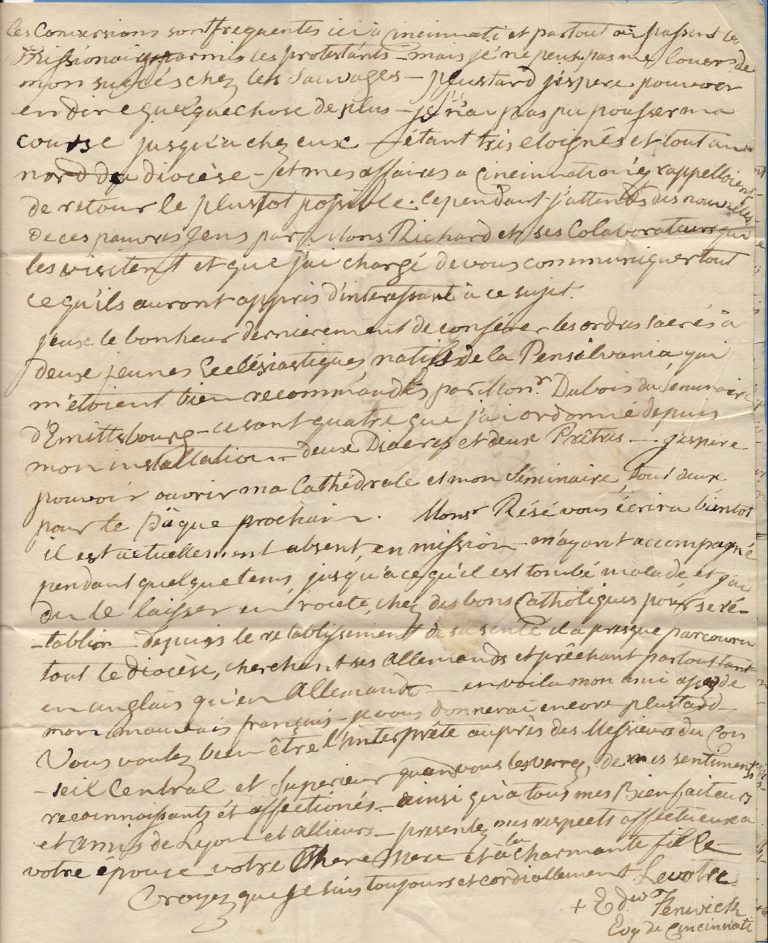 les Conversions sont frequentes ici à cincinnati et partout où passent les
Missionaires parmis les protestants – mais je ne peut pas me louer de
mon succés chez les Sauvages – plustard j'espere pouvoir
en dire quelque chose de plus – je n'ai pas pu pousser ma
course jusqu'a chez eux – étant trés eloignés et tout au
nord du diocèse – et mes affaires a Cincinnati m'y rappelloient
de retour le plustot possible. cependant j'attends des nouvelles
de ces pauvres gens par Mons Richard et ses Colaborateurs qui
les visitent et que j'ai chargé de vous communiquer tout
ce qu'ils auront appris d'interessant à ce sujet.
j'eus le bonheur dernierement de conférer les ordres sacrés à
deux jeunes Ecclésiastiques natifs de la Pensilvania qui
m'étoient bien recommandés par Monr. Dubois du Seminaire
d'Emittsbourg – ce sont quatre que j'ai ordonné depuis
mon installation – deux Diacres et deux Prêtres – j'espere
pouvoir ouvrir ma Cathédrale et mon Séminaire tout deux
pour le Pâque prochain. Monsr Résé vous écrira bientot
il est actuellement absent, en mission – m'ayant accompagné
pendant quelque tems, jusqu'a ce qu'il est tombé malade et j'ai
du le laisser en route, chez des bons Catholiques pour se ré-
-tablir – depuis le retablissement de sa santé il a presque parcouru
tout le diocèse, cherchant ses Allemands et prêchant partout tant
en anglais qu'en Allemand – en voila mon ami assez de
mon mauvais français – je vous donnerai encore plustard
Vous voulez bien être l'interprète auprès des Messieurs du Con
-seil Central et Superieur quand vous les verrez, de mes sentiments
reconnoissants et affectionés – ainsi qu'à tous mes Bienfaiteurs
et amis de Lyon et allieurs – presentez mes respects affectueux a
votre épouse votre Chere Mere et à la charmante fille
Croyez que je suis toujours et cordiallement Le votre
+ Edwd Fenwick
Evq de Cincinnati